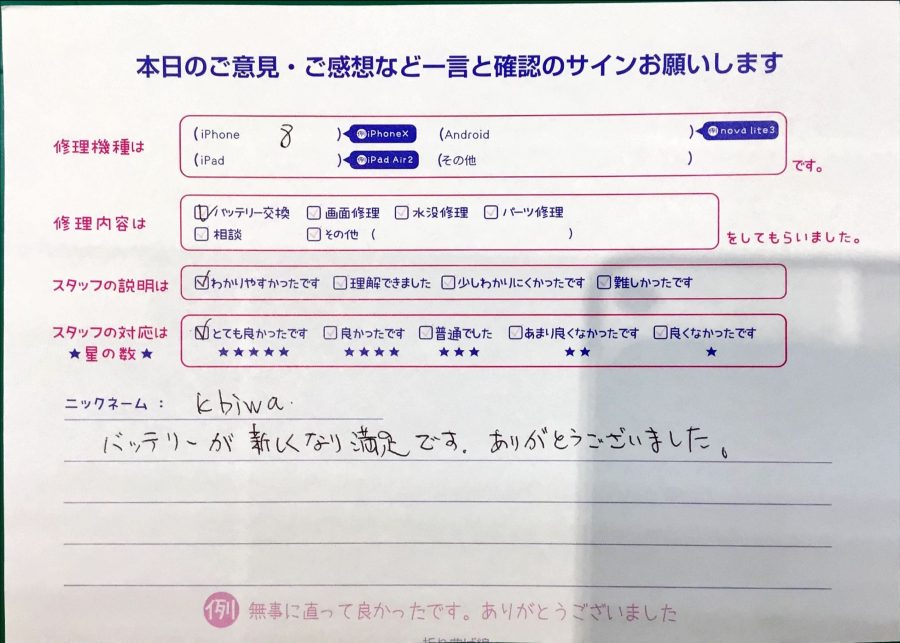 本日のご意見・ご感想など一言と確認のサインお願いします
修理機種は (iPhone 8 ) 例 iPhoneX (Android ) 例 nova lite3
(iPad ) 例 iPad Air2 (その他 ) です。
修理内容は バッテリー交換 画面修理 水没修理 パーツ修理
相談 その他 ( ) をしてもらいました。
スタッフの説明は わかりやすかったです 理解できました 少しわかりにくかったです 難しかったです
スタッフの対応は とても良かったです 良かったです 普通でした あまり良くなかったです 良くなかったです
★星の数★ ★★★★★ ★★★★ ★★★ ★★ ★
ニックネーム: kbiwa.
バッテリーが新しくなり満足です. ありがとうございました。
例 無事に直って良かったです。ありがとうございました